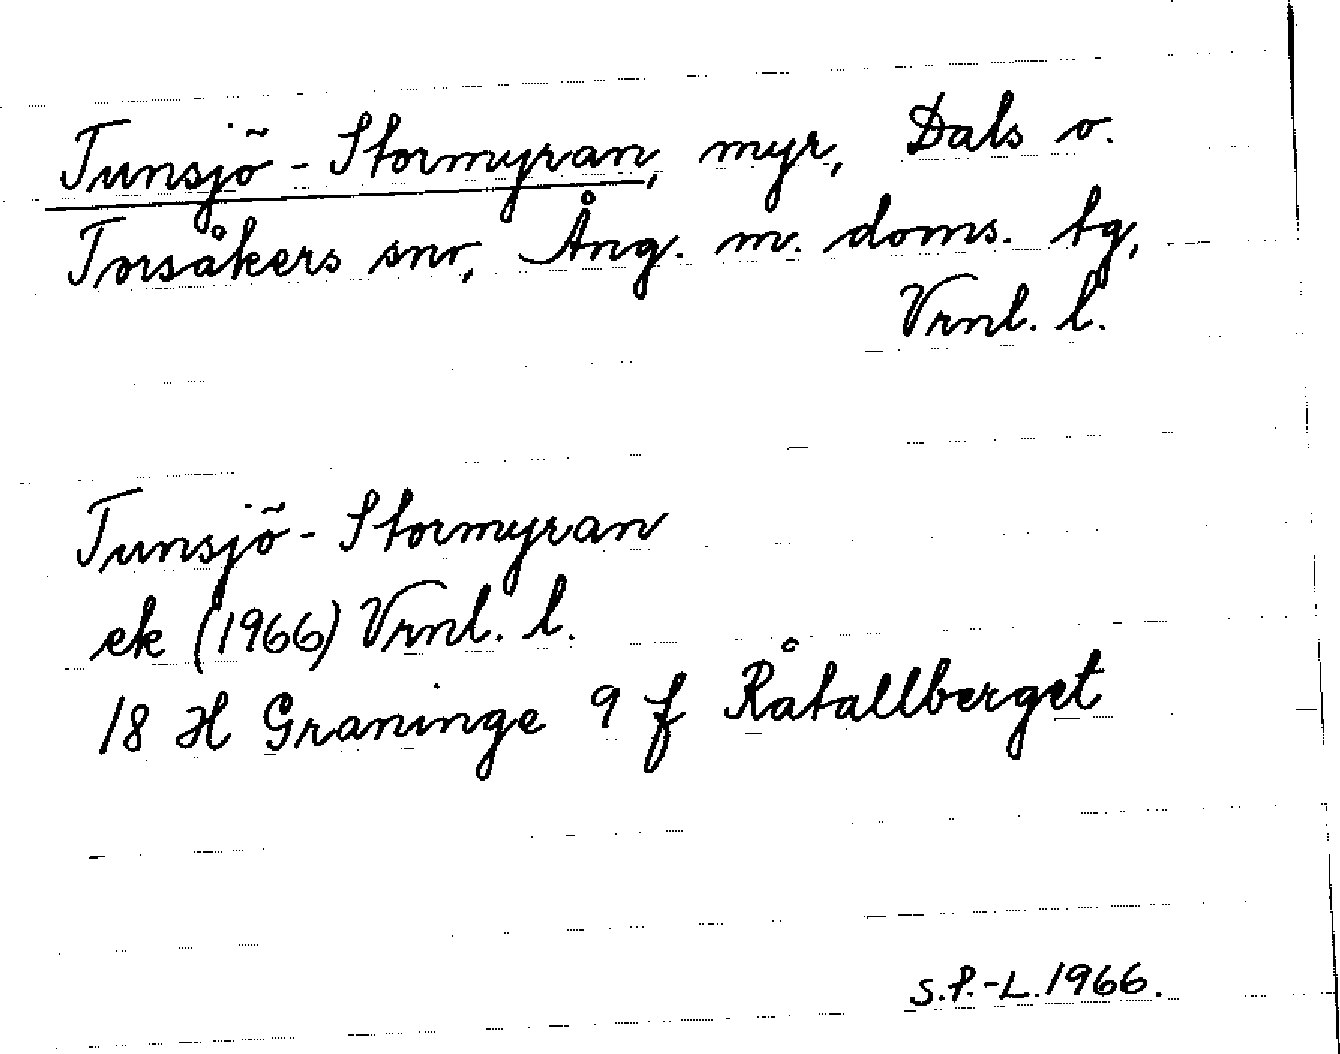 Tunsjö-Stormyran, myr, Dals o.
Torsåkers snr, Ång. m. doms. tg,
Vrnl. l.
Tunsjö-Stormyran
ek (1966) Vrnl. l.
18 H Graninge 9 f Råtallberget
S.P.-L. 1966.